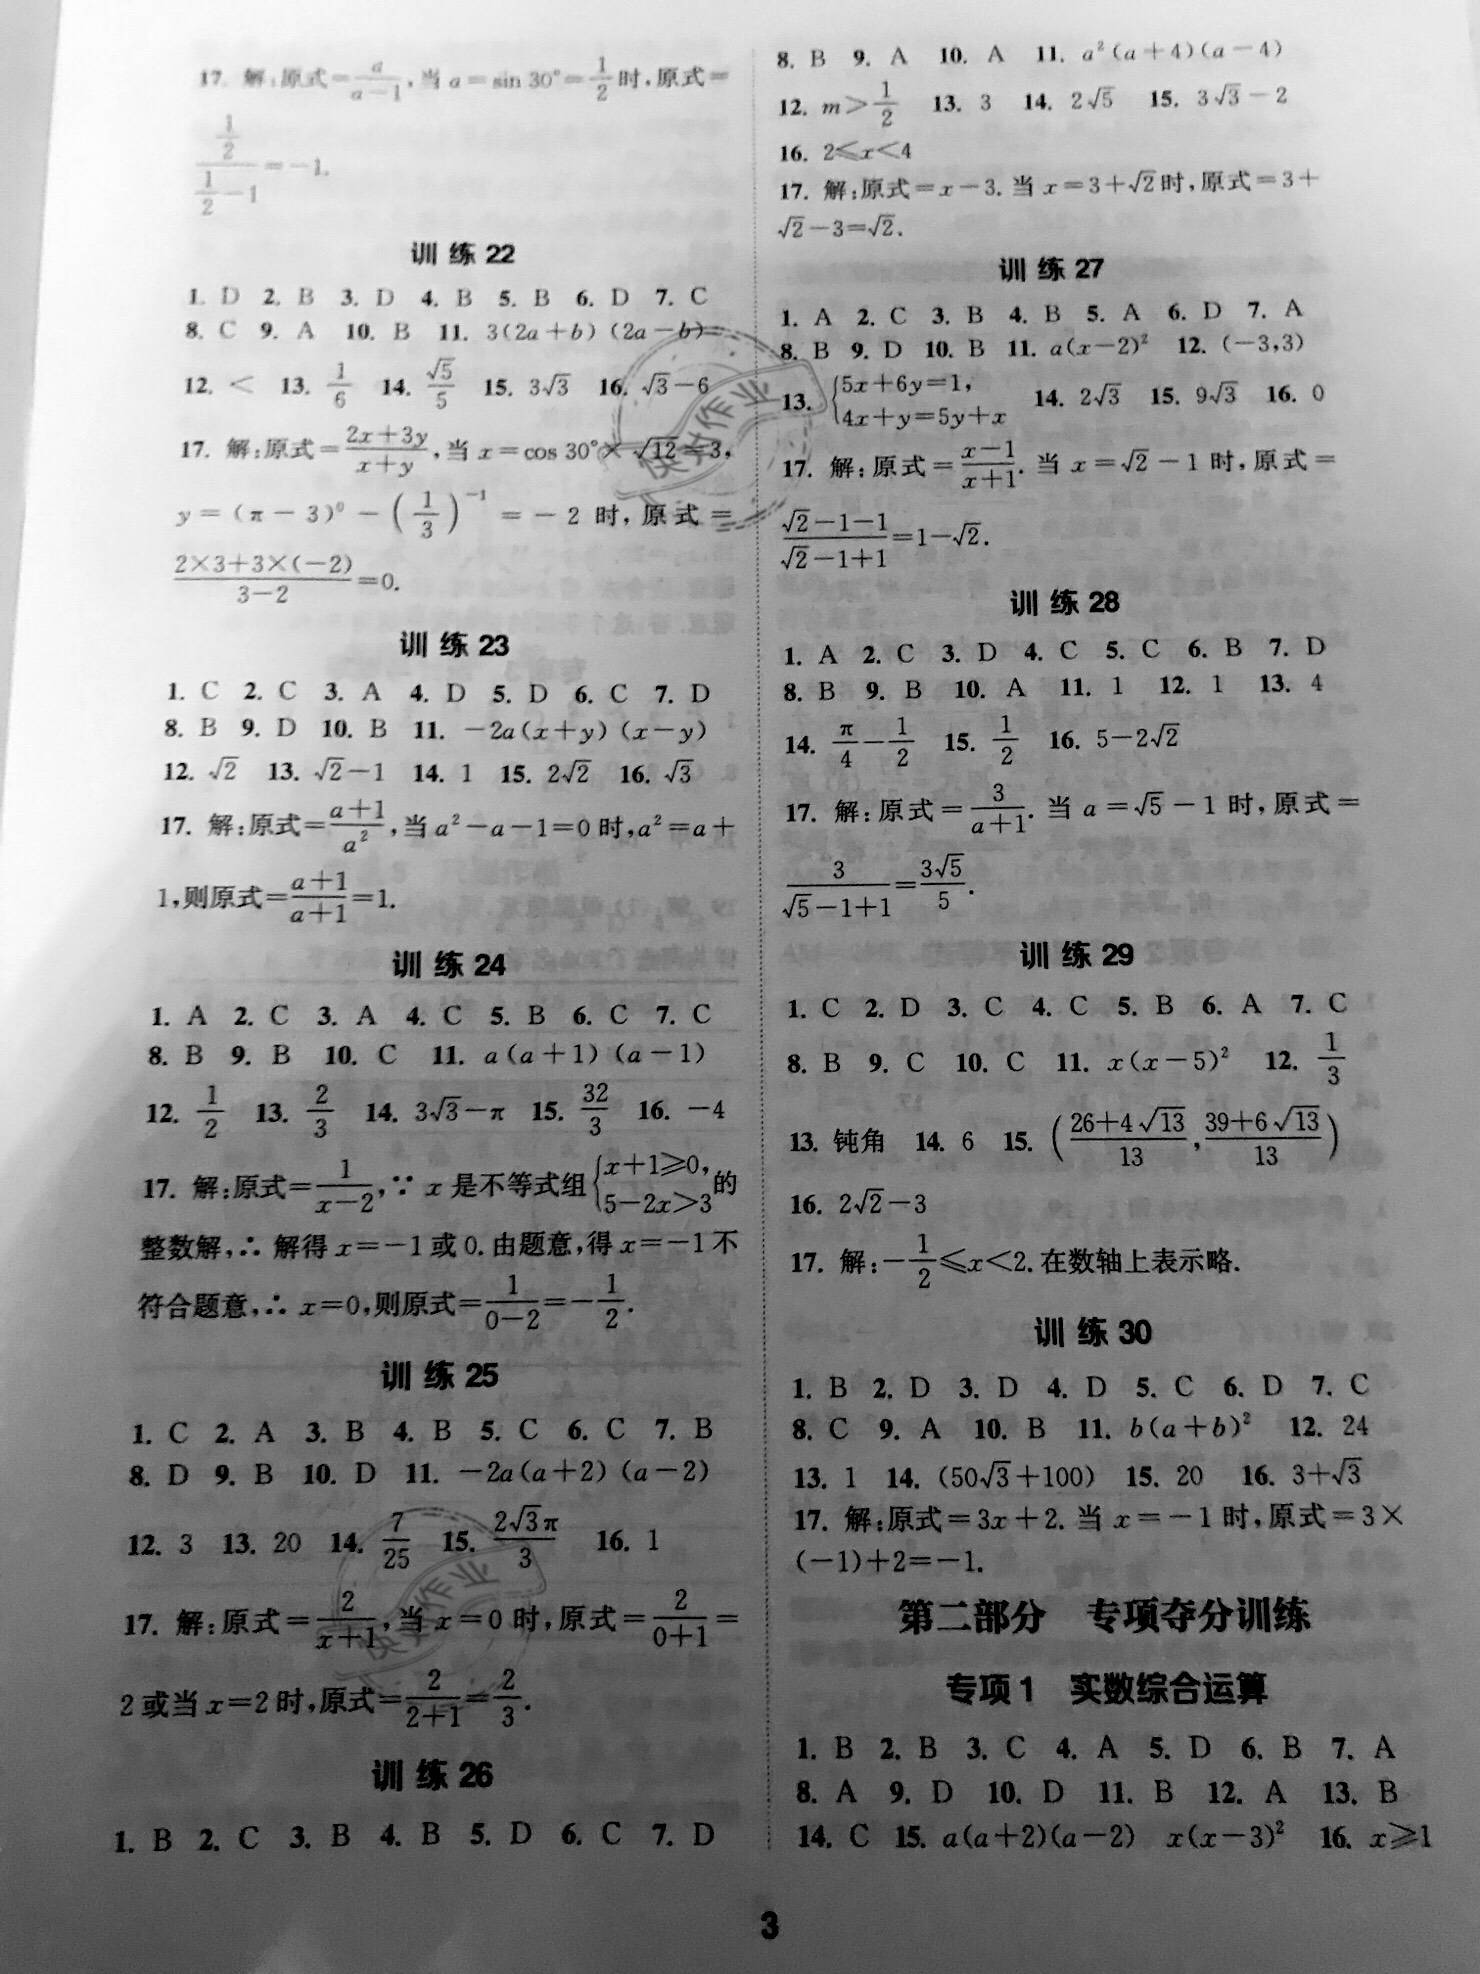 17. 解:原式=a/(a-1),当a=sin 30°=1/2时,原式=
(1/2)/(1/2-1)=-1.
训 练 22
1. D 2. B 3. D 4. B 5. B 6. D 7. C
8. C 9. A 10. B 11. 3(2a+b)(2a-b)
12. < 13. 1/6 14. √5/5 15. 3√3 16. √3-6
17. 解:原式=(2x+3y)/(x+y),当x=cos 30°×√12=3,
y=(π-3)⁰-(1/3)⁻¹=-2时,原式=
(2×3+3×(-2))/(3-2)=0.
训 练 23
1. C 2. C 3. A 4. D 5. D 6. C 7. D
8. B 9. D 10. B 11. -2a(x+y)(x-y)
12. √2 13. √2-1 14. 1 15. 2√2 16. √3
17. 解:原式=(a+1)/a²,当a²-a-1=0时,a²=a+
1,则原式=(a+1)/(a+1)=1.
训 练 24
1. A 2. C 3. A 4. C 5. B 6. C 7. C
8. B 9. B 10. C 11. a(a+1)(a-1)
12. 1/2 13. 2/3 14. 3√3-π 15. 32/3 16. -4
17. 解:原式=1/(x-2),∵x是不等式组{x+1≥0, 5-2x>3的
整数解,∴解得x=-1或0.由题意,得x=-1不
符合题意,∴x=0,则原式=1/(0-2)=-1/2.
训 练 25
1. C 2. A 3. B 4. B 5. C 6. C 7. B
8. D 9. B 10. D 11. -2a(a+2)(a-2)
12. 3 13. 20 14. 7/25 15. 2√3π/3 16. 1
17. 解:原式=2/(x+1),当x=0时,原式=2/(0+1)=
2或当x=2时,原式=2/(2+1)=2/3.
训 练 26
1. B 2. C 3. B 4. B 5. D 6. C 7. D
8. B 9. A 10. A 11. a²(a+4)(a-4)
12. m>1/2 13. 3 14. 2√5 15. 3√3-2
16. 2≤x<4
17. 解:原式=x-3.当x=3+√2时,原式=3+
√2-3=√2.
训 练 27
1. A 2. C 3. B 4. B 5. A 6. D 7. A
8. B 9. D 10. B 11. a(x-2)² 12. (-3,3)
13. {5x+6y=1, 4x+y=5y+x 14. 2√3 15. 9√3 16. 0
17. 解:原式=(x-1)/(x+1).当x=√2-1时,原式=
(√2-1-1)/(√2-1+1)=1-√2.
训 练 28
1. A 2. C 3. D 4. C 5. C 6. B 7. D
8. B 9. B 10. A 11. 1 12. 1 13. 4
14. π/4-1/2 15. 1/2 16. 5-2√2
17. 解:原式=3/(a+1).当a=√5-1时,原式=
3/(√5-1+1)=3√5/5.
训 练 29
1. C 2. D 3. C 4. C 5. B 6. A 7. C
8. B 9. C 10. C 11. x(x-5)² 12. 1/3
13. 钝角 14. 6 15. ((26+4√13)/13,(39+6√13)/13)
16. 2√2-3
17. 解:-1/2≤x<2.在数轴上表示略.
训 练 30
1. B 2. D 3. D 4. D 5. C 6. D 7. C
8. C 9. A 10. B 11. b(a+b)² 12. 24
13. 1 14. (50√3+100) 15. 20 16. 3+√3
17. 解:原式=3x+2.当x=-1时,原式=3×
(-1)+2=-1.
第二部分 专项夺分训练
专项1 实数综合运算
1. B 2. B 3. C 4. A 5. D 6. B 7. A
8. A 9. D 10. D 11. B 12. A 13. B
14. C 15. a(a+2)(a-2) x(x-3)² 16. x≥1
3